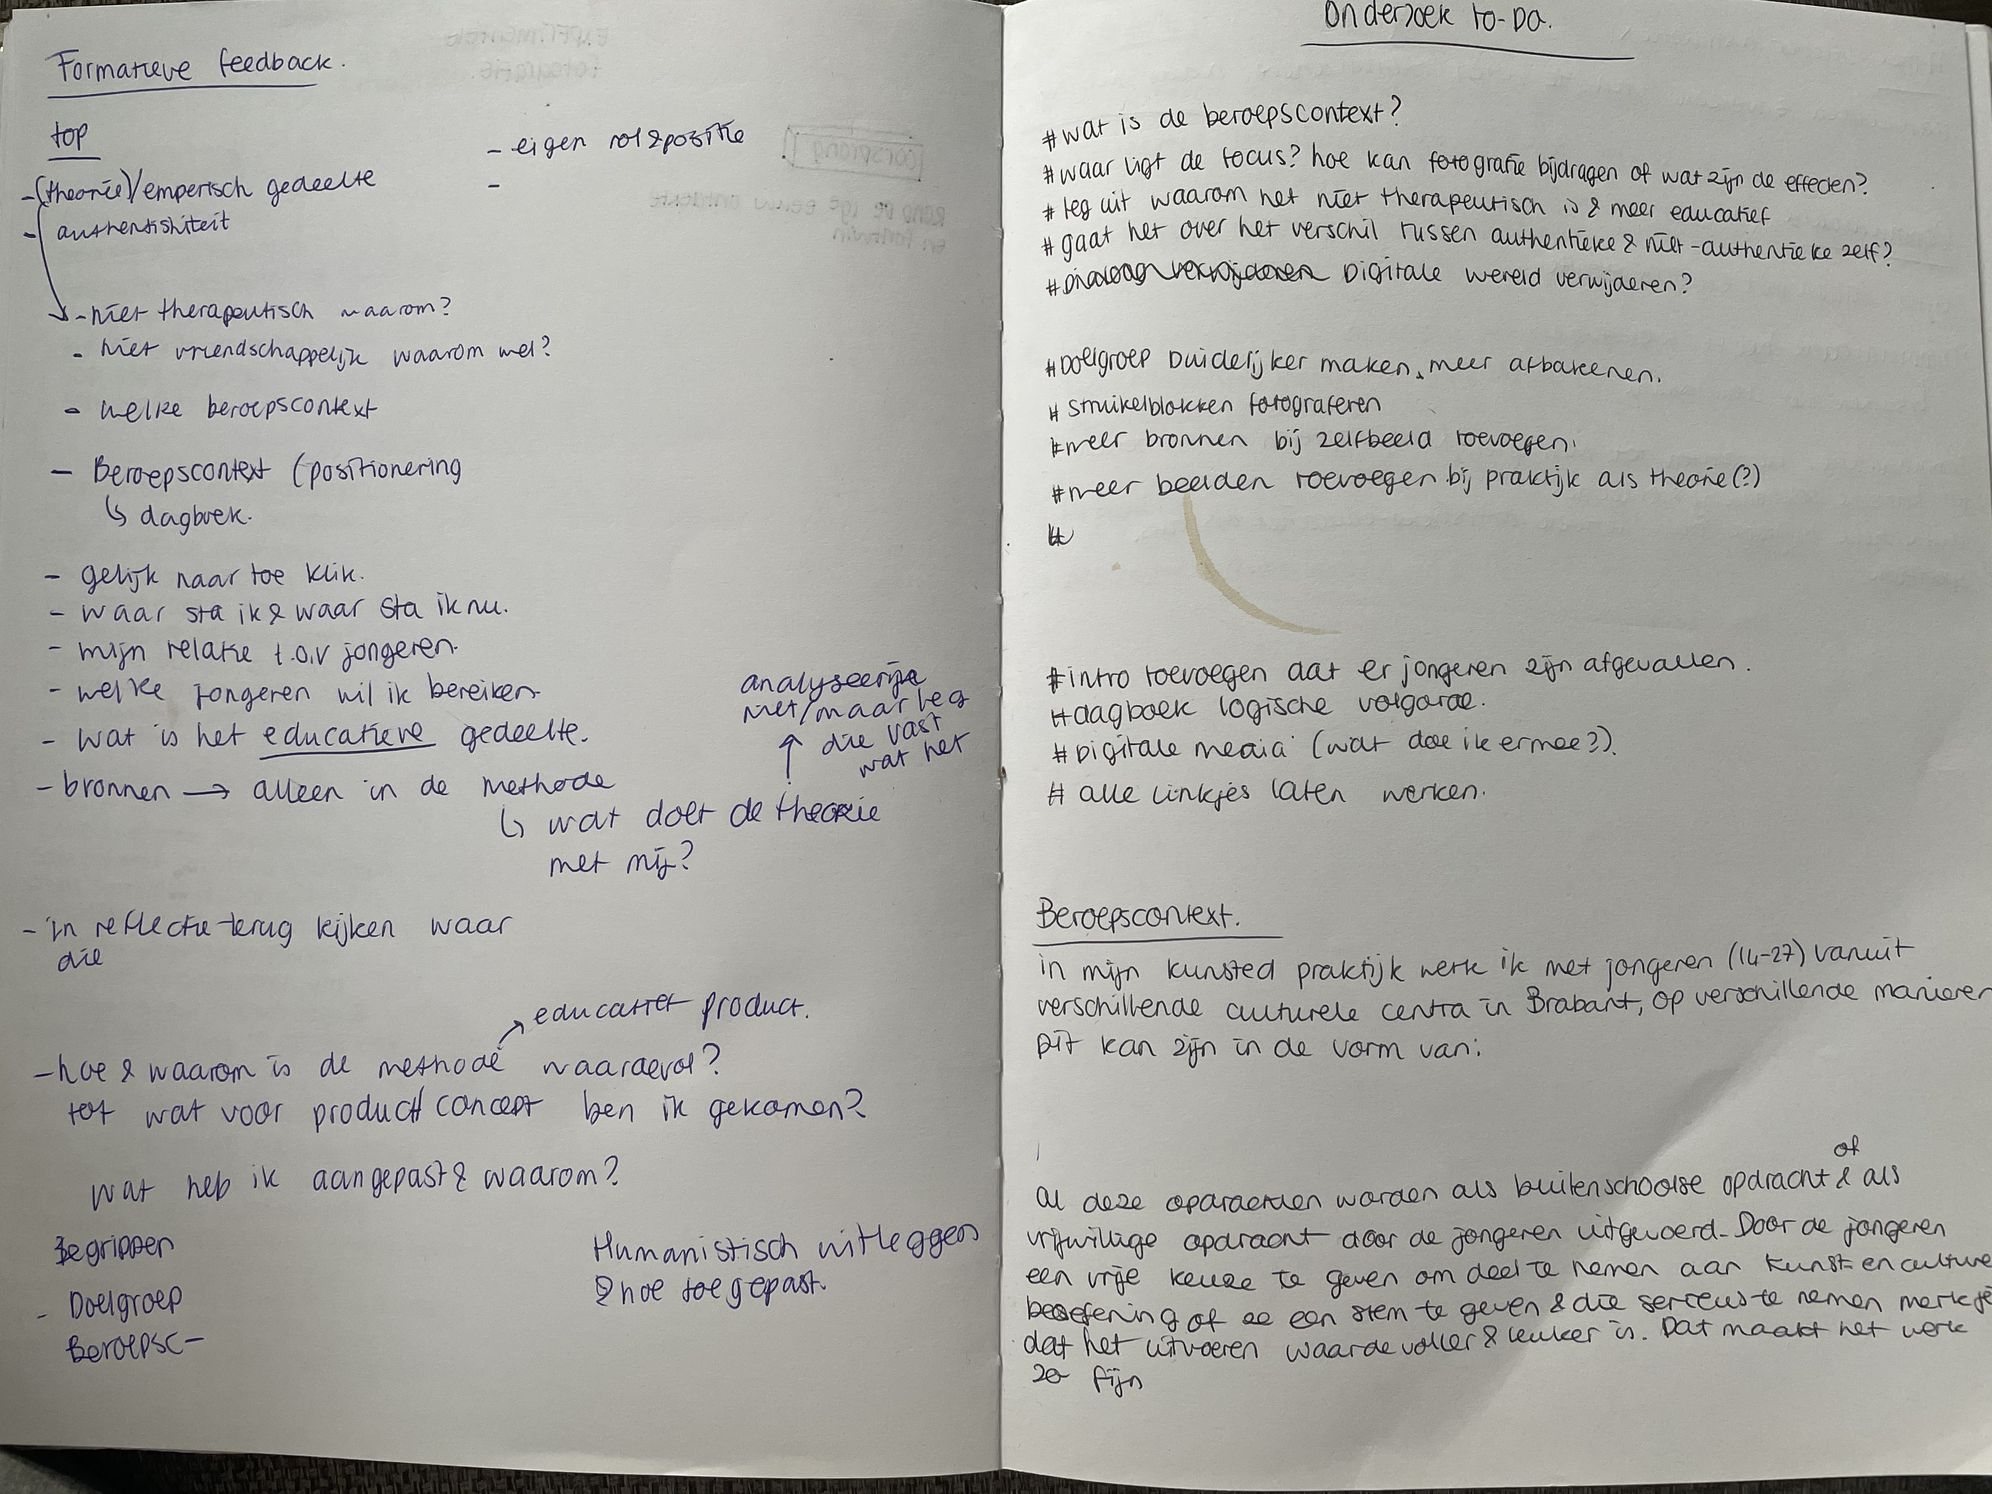 Formatieve feedback.
top
- (theorie)/emperisch gedeelte
- authentishiteit
- eigen rol & positie
-
- niet therapeutisch waarom?
- niet vriendschappelijk waarom wel?
- welke beroepscontext
- Beroepscontext (positionering
↳ dagboek.
- gelijk naar toe klik.
- waar sta ik & waar sta ik nu.
- mijn relatie t.o.v jongeren.
- welke jongeren wil ik bereiken.
- wat is het educatieve gedeelte.
- bronnen → alleen in de methode
↳ wat doet de theorie
met mij?
analyseer je
niet/maar leg
die vast
wat het
- in reflectie terug kijken waar
die
educatief product.
- hoe & waarom is de methode waardevol?
tot wat voor product/concept ben ik gekomen?
wat heb ik aangepast & waarom?
Begrippen
- Doelgroep
Beroepsc-
Humanistisch uitleggen
& hoe toegepast.
Onderzoek to-Do.
# wat is de beroepscontext?
# waar ligt de focus? hoe kan fotografie bijdragen of wat zijn de effecten?
# leg uit waarom het niet therapeutisch is & meer educatief
# gaat het over het verschil tussen authentieke & niet-authentieke zelf?
# Digitale wereld verwijderen?
# Doelgroep Duidelijker maken, meer afbakenen.
# struikelblokken fotograferen
# meer bronnen bij zelfbeeld toevoegen.
# meer beelden toevoegen bij praktijk als theorie (?)
#
# intro toevoegen dat er jongeren zijn afgevallen.
# dagboek logische volgorde.
# Digitale media (wat doe ik ermee?).
# alle linkjes laten werken.
Beroepscontext.
in mijn kunsted praktijk werk ik met jongeren (14-27) vanuit
verschillende culturele centra in Brabant, op verschillende manieren
Dit kan zijn in de vorm van:
of
Al deze opdrachten worden als buitenschoolse opdracht & als
vrijwillige opdracht door de jongeren uitgevoerd. Door de jongeren
een vrije keuze te geven om deel te nemen aan kunst- en culture
beoefening of ze een stem te geven & die serieus te nemen merk je
dat het uitvoeren waardevoller & leuker is. Dat maakt het werk
zo fijn